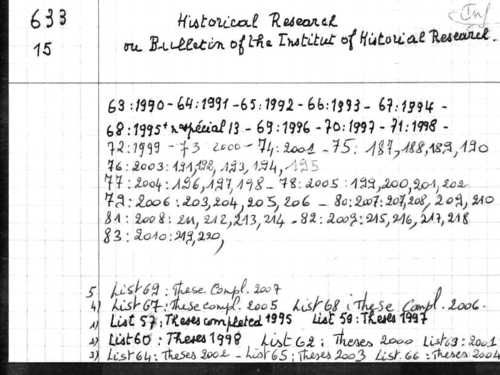 633
15
Inf
Historical Research
ou Bulletin of the Institut of Historial Research.
63:1990 - 64:1991 - 65:1992 - 66:1993 - 67:1994 -
68:1995 + n° spécial 13 - 69:1996 - 70:1997 - 71:1998 -
72:1999 - 73 2000 - 74:2001 - 75: 187,188,189,190
76:2003:191,192,193,194,195
77:2004:196,197,198 - 78:2005:199,200,201,202
79:2006:203,204,205,206 - 80:2007:207,208,209,210
81:2008:211,212,213,214 - 82:2009:215,216,217,218
83:2010:219,220,
5 List 69: These Compl. 2007
4) List 67: These compl. 2005 List 68: These Compl. 2006.
1) List 57: Theses completed 1995 List 59: Theses 1997
2) List 60: Theses 1998 List 62: Theses 2000 List 63: 2001
3) List 64: Theses 2002 - List 65: Theses 2003 List. 66: Theses 2004